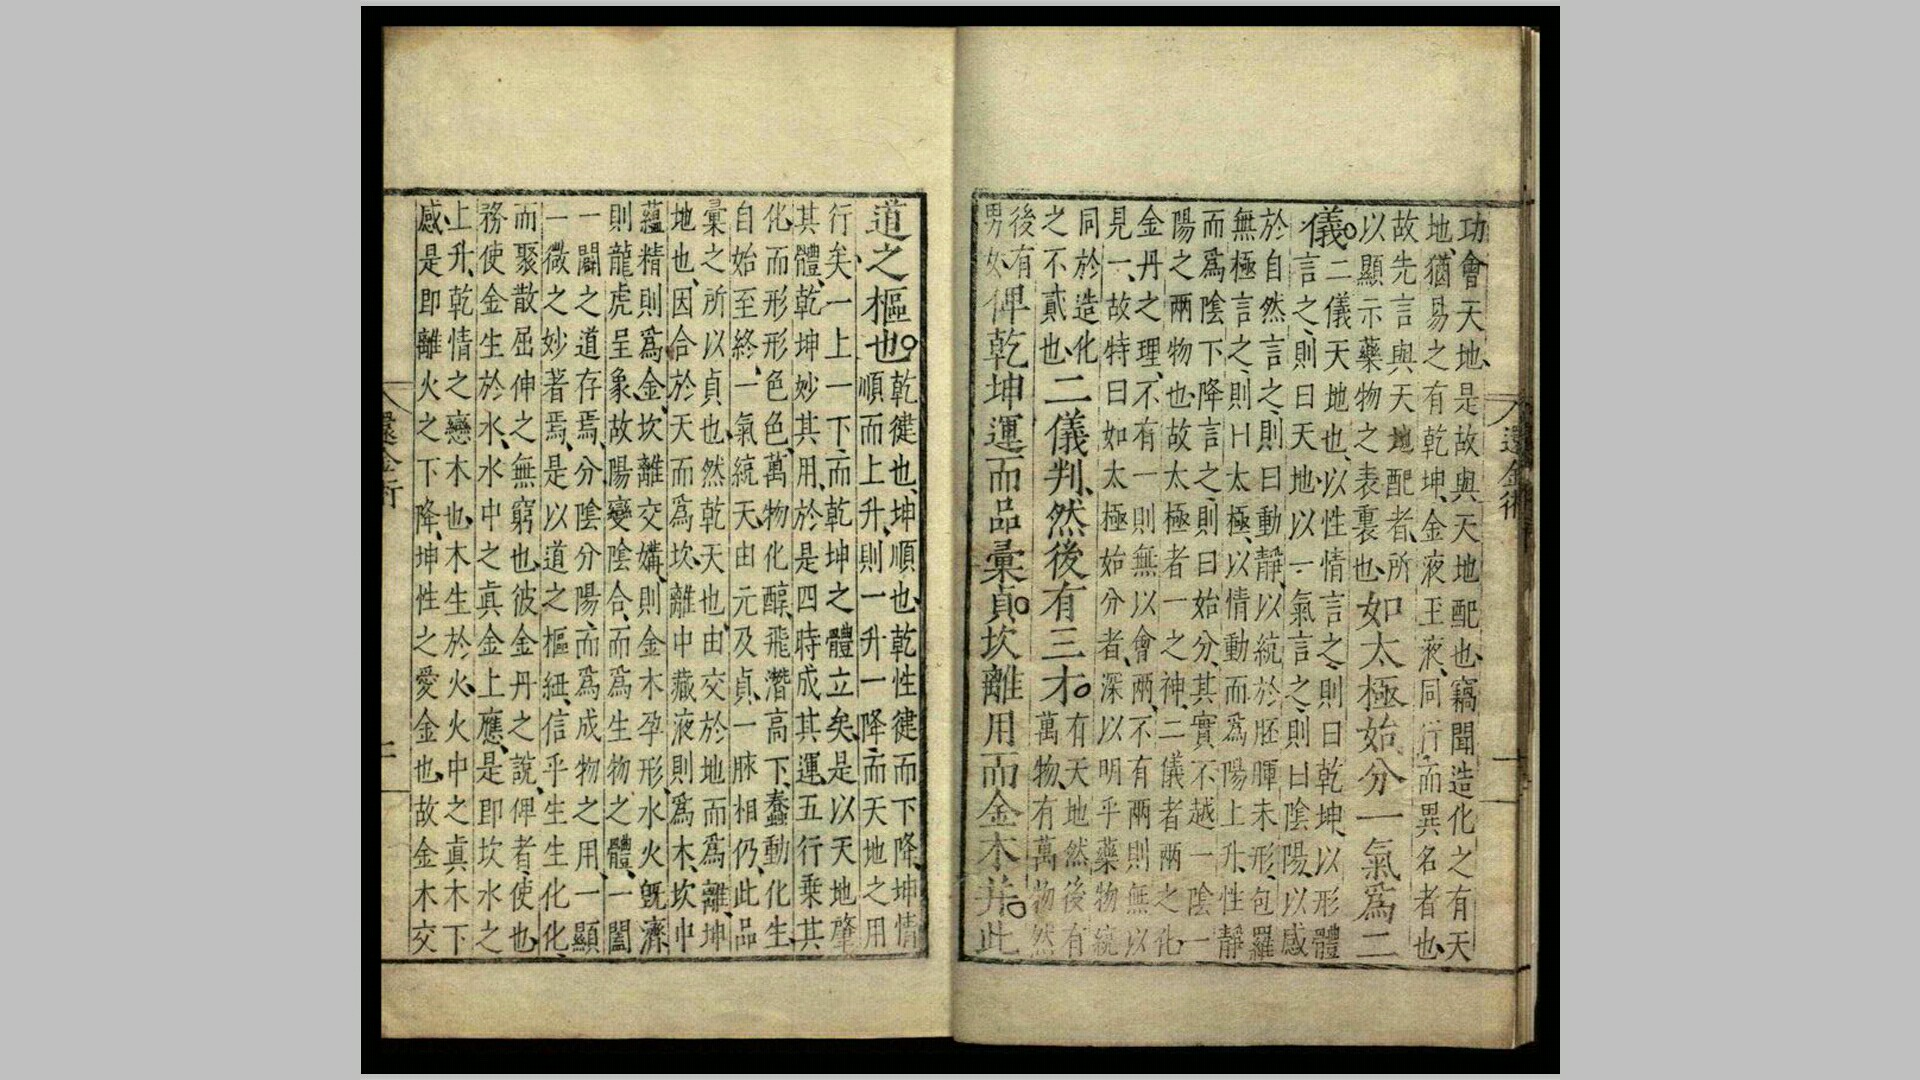 功會天地、是故與天地配也、竊聞造化之有天
地、猶易之有乾坤、金液玉液、同行而異名者也、
故先言與天地配者、所
以顯示藥物之表裏也、
如太極始分一氣爲二
儀。
二儀天地也、以性情言之、則曰乾坤、以形體
言之、則曰天地以一氣言之、則曰陰陽、以感
於自然言之、則曰動靜、以統於胚暉未形、包羅
無極言之、則曰太極、以情動而爲陽上升、性靜
而爲陰下降言之、則曰始分、其實不越一陰一
陽之兩物也、故太極者一之神、二儀者兩之化、
金丹之理、不有一則無以會兩、不有兩則無以
見一、故特曰如太極始分者、深以明乎藥物統
同於造化
之不貳也、
二儀判、然後有三才。
有天地然後有
萬物、有萬物然
後有
男女、
俾乾坤運而品彙貞。坎離用而金木并。此
還金術
道之樞也。
乾健也、坤順也、乾性健而下降、坤情
順而上升、則一升一降、而天地之用
行矣、一上一下、而乾坤之體立矣、是以天地肇
其體、乾坤妙其用、於是四時成其運、五行乗其
化、而形形色色、萬物化醇、飛潛高下、蠢動化生、
自始至終、一氣統天、由元及貞、一脉相仍、此品
彙之所以貞也、然乾天也、由交於地而爲離、坤
地也、因合於天而爲坎、離中藏液則爲木、坎中
蘊精則爲金、坎離交媾、則金木孕形、水火旣濟
則龍虎呈象、故陽變陰合、而爲生物之體、一闔
一闢之道存焉、分陰分陽、而爲成物之用、一顯
一微之妙著焉、是以道之樞紐、信乎生生化化、
而聚散屈伸之無窮也、彼金丹之說、俾者、使也、
務使金生於水、水中之真金上應、是即坎水之
上升、乾情之戀木也、木生於火、火中之真木下
感是即離火之下降、坤性之愛金也、故金木交